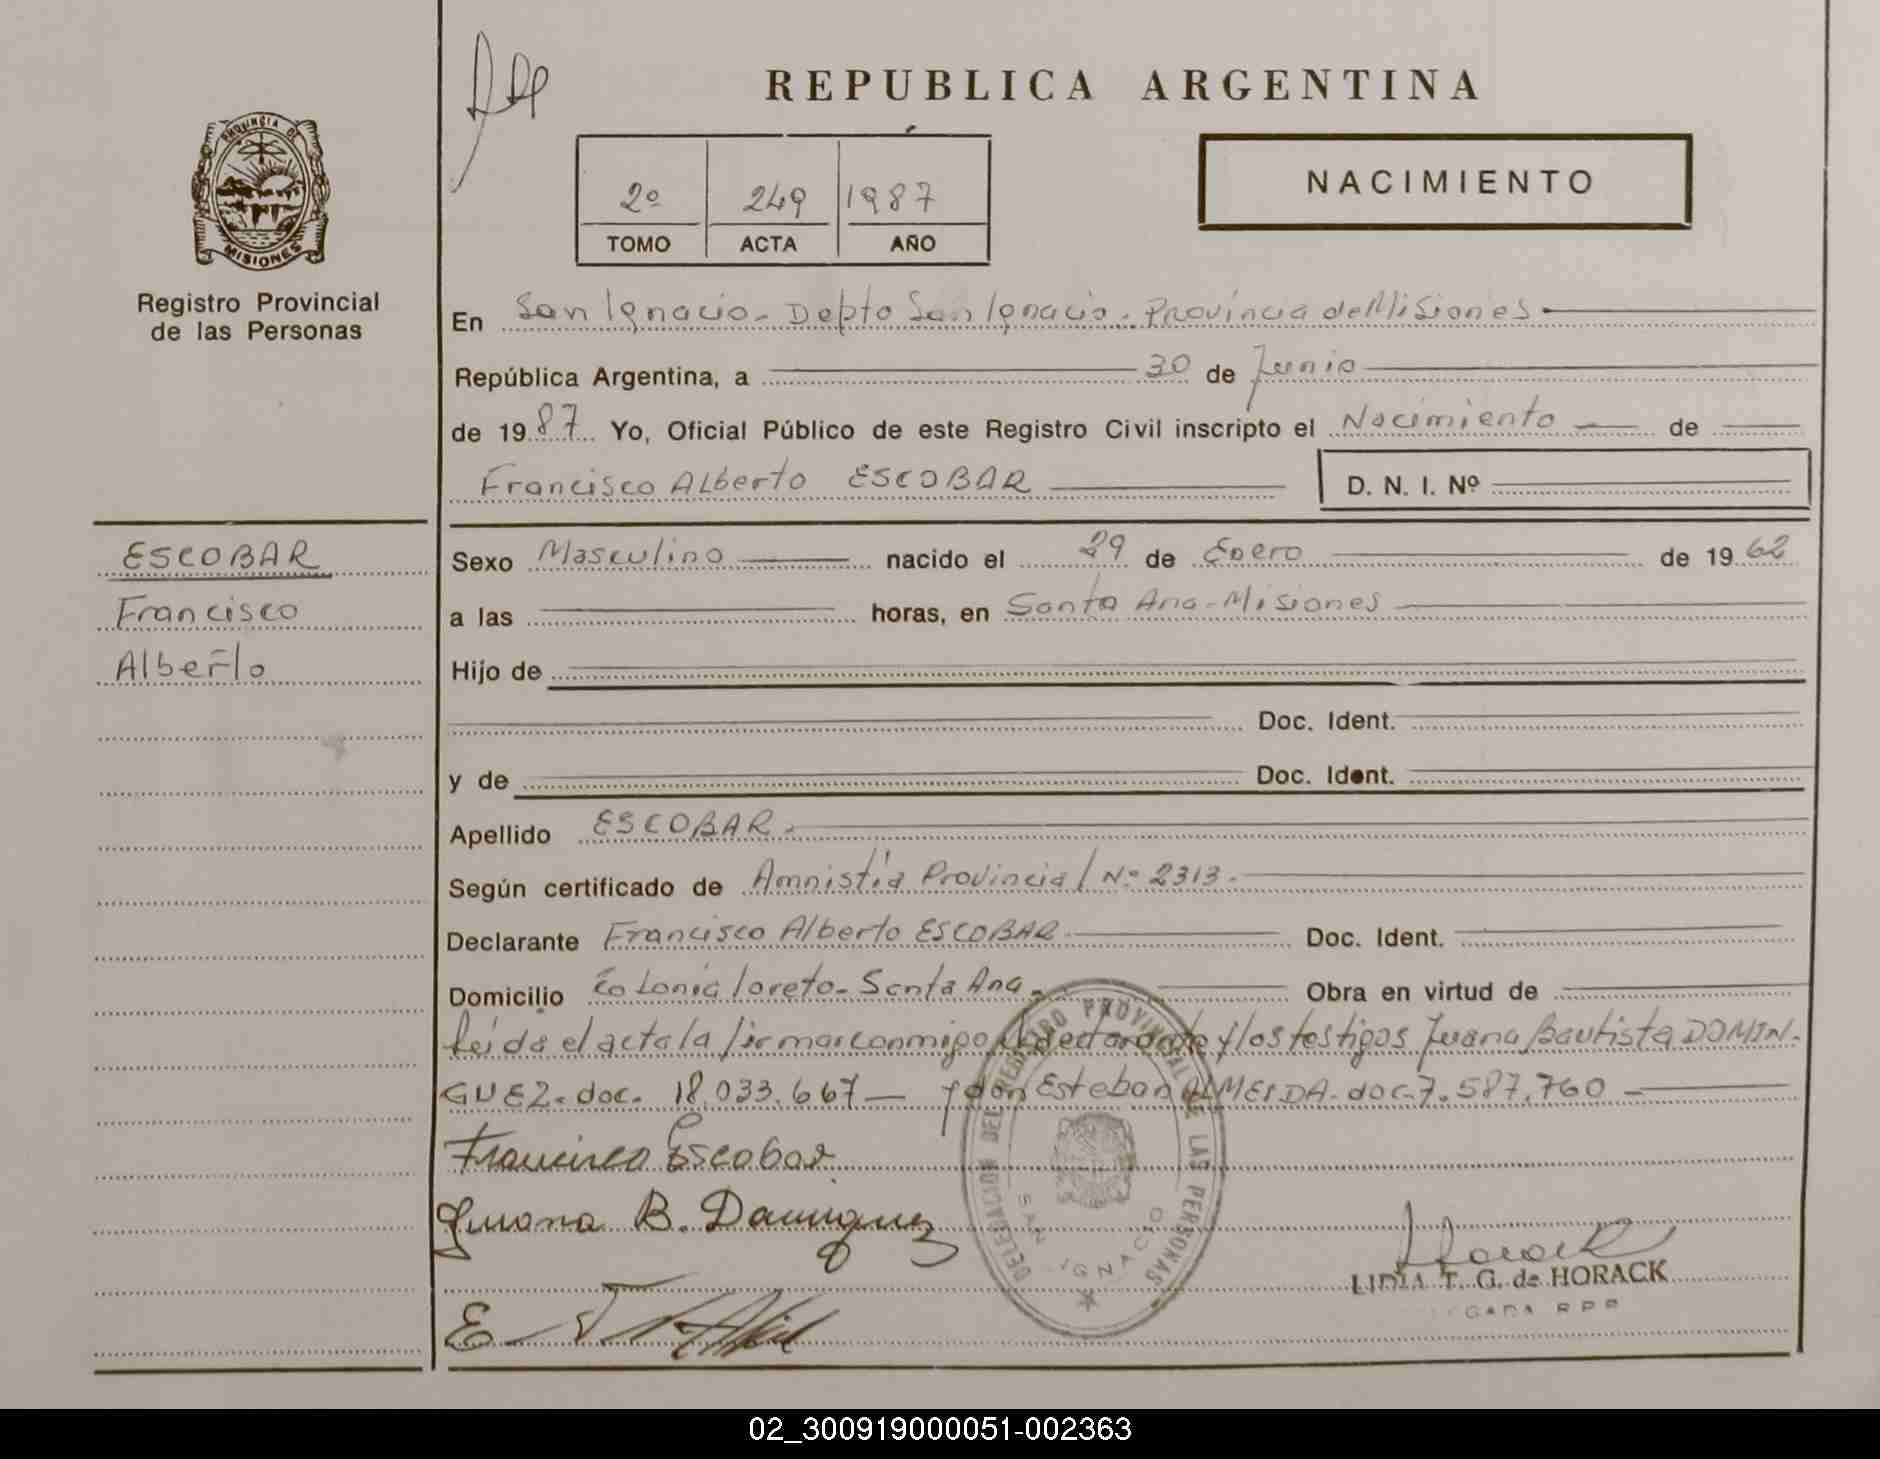 REPUBLICA ARGENTINA
PROVINCIA DE
MISIONES
Registro Provincial
de las Personas
2º 249 1987
TOMO ACTA AÑO
NACIMIENTO
En San Ignacio - Depto San Ignacio - Provincia de Misiones
República Argentina, a 30 de Junio
de 1987 Yo, Oficial Público de este Registro Civil inscripto el Nacimiento de
Francisco Alberto ESCOBAR D. N. I. Nº
ESCOBAR
Francisco
Alberto
Sexo Masculino nacido el 29 de Enero de 1962
a las horas, en Santa Ana - Misiones
Hijo de
Doc. Ident.
y de Doc. Ident.
Apellido ESCOBAR.
Según certificado de Amnistía Provincial / Nº 2313.
Declarante Francisco Alberto ESCOBAR Doc. Ident.
Domicilio Colonia loreto - Santa Ana. Obra en virtud de
leida el acta la firmar conmigo el declarante y los testigos Juana Bautista DOMIN-
GUEZ. doc. 18.033.667 — y don Esteban ALMEIDA. doc. 7.587.760 —
Francisco Escobar
Juana B. Dominguez
DELEGACION DEL REGISTRO PROVINCIAL DE LAS PERSONAS
SAN IGNACIO
Horack
LIDIA T. G. de HORACK
02_300919000051-002363